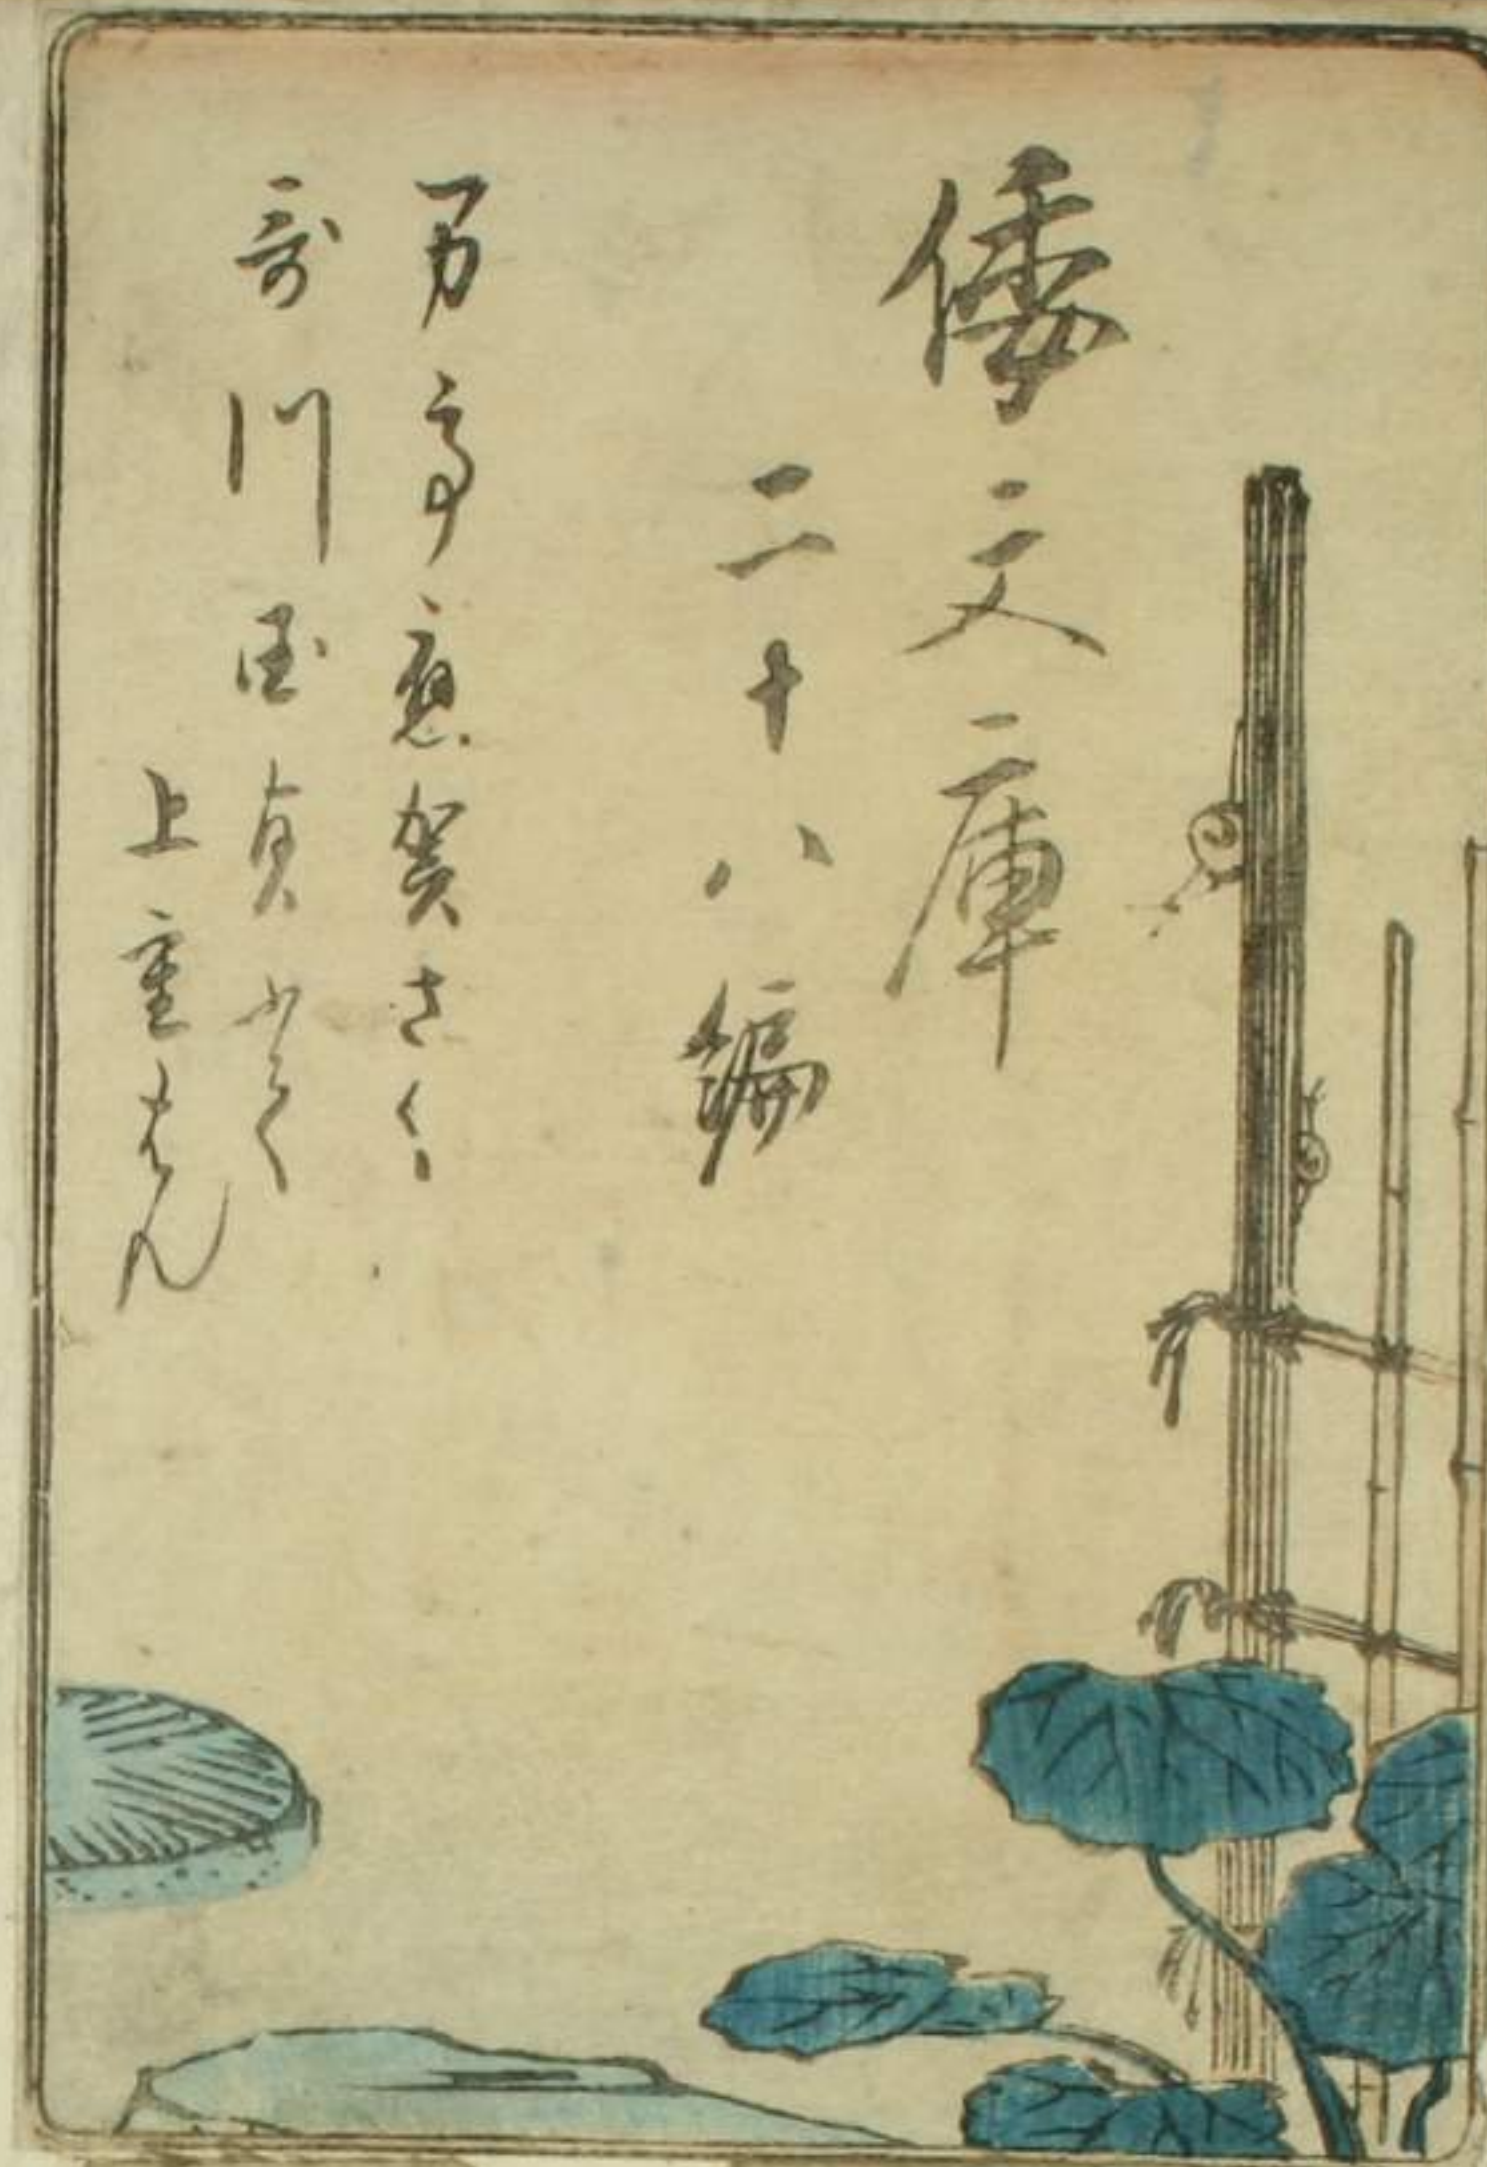 倭文庫
二十八編
万亭應賀さく
哥川国貞ゑかく
上重はん